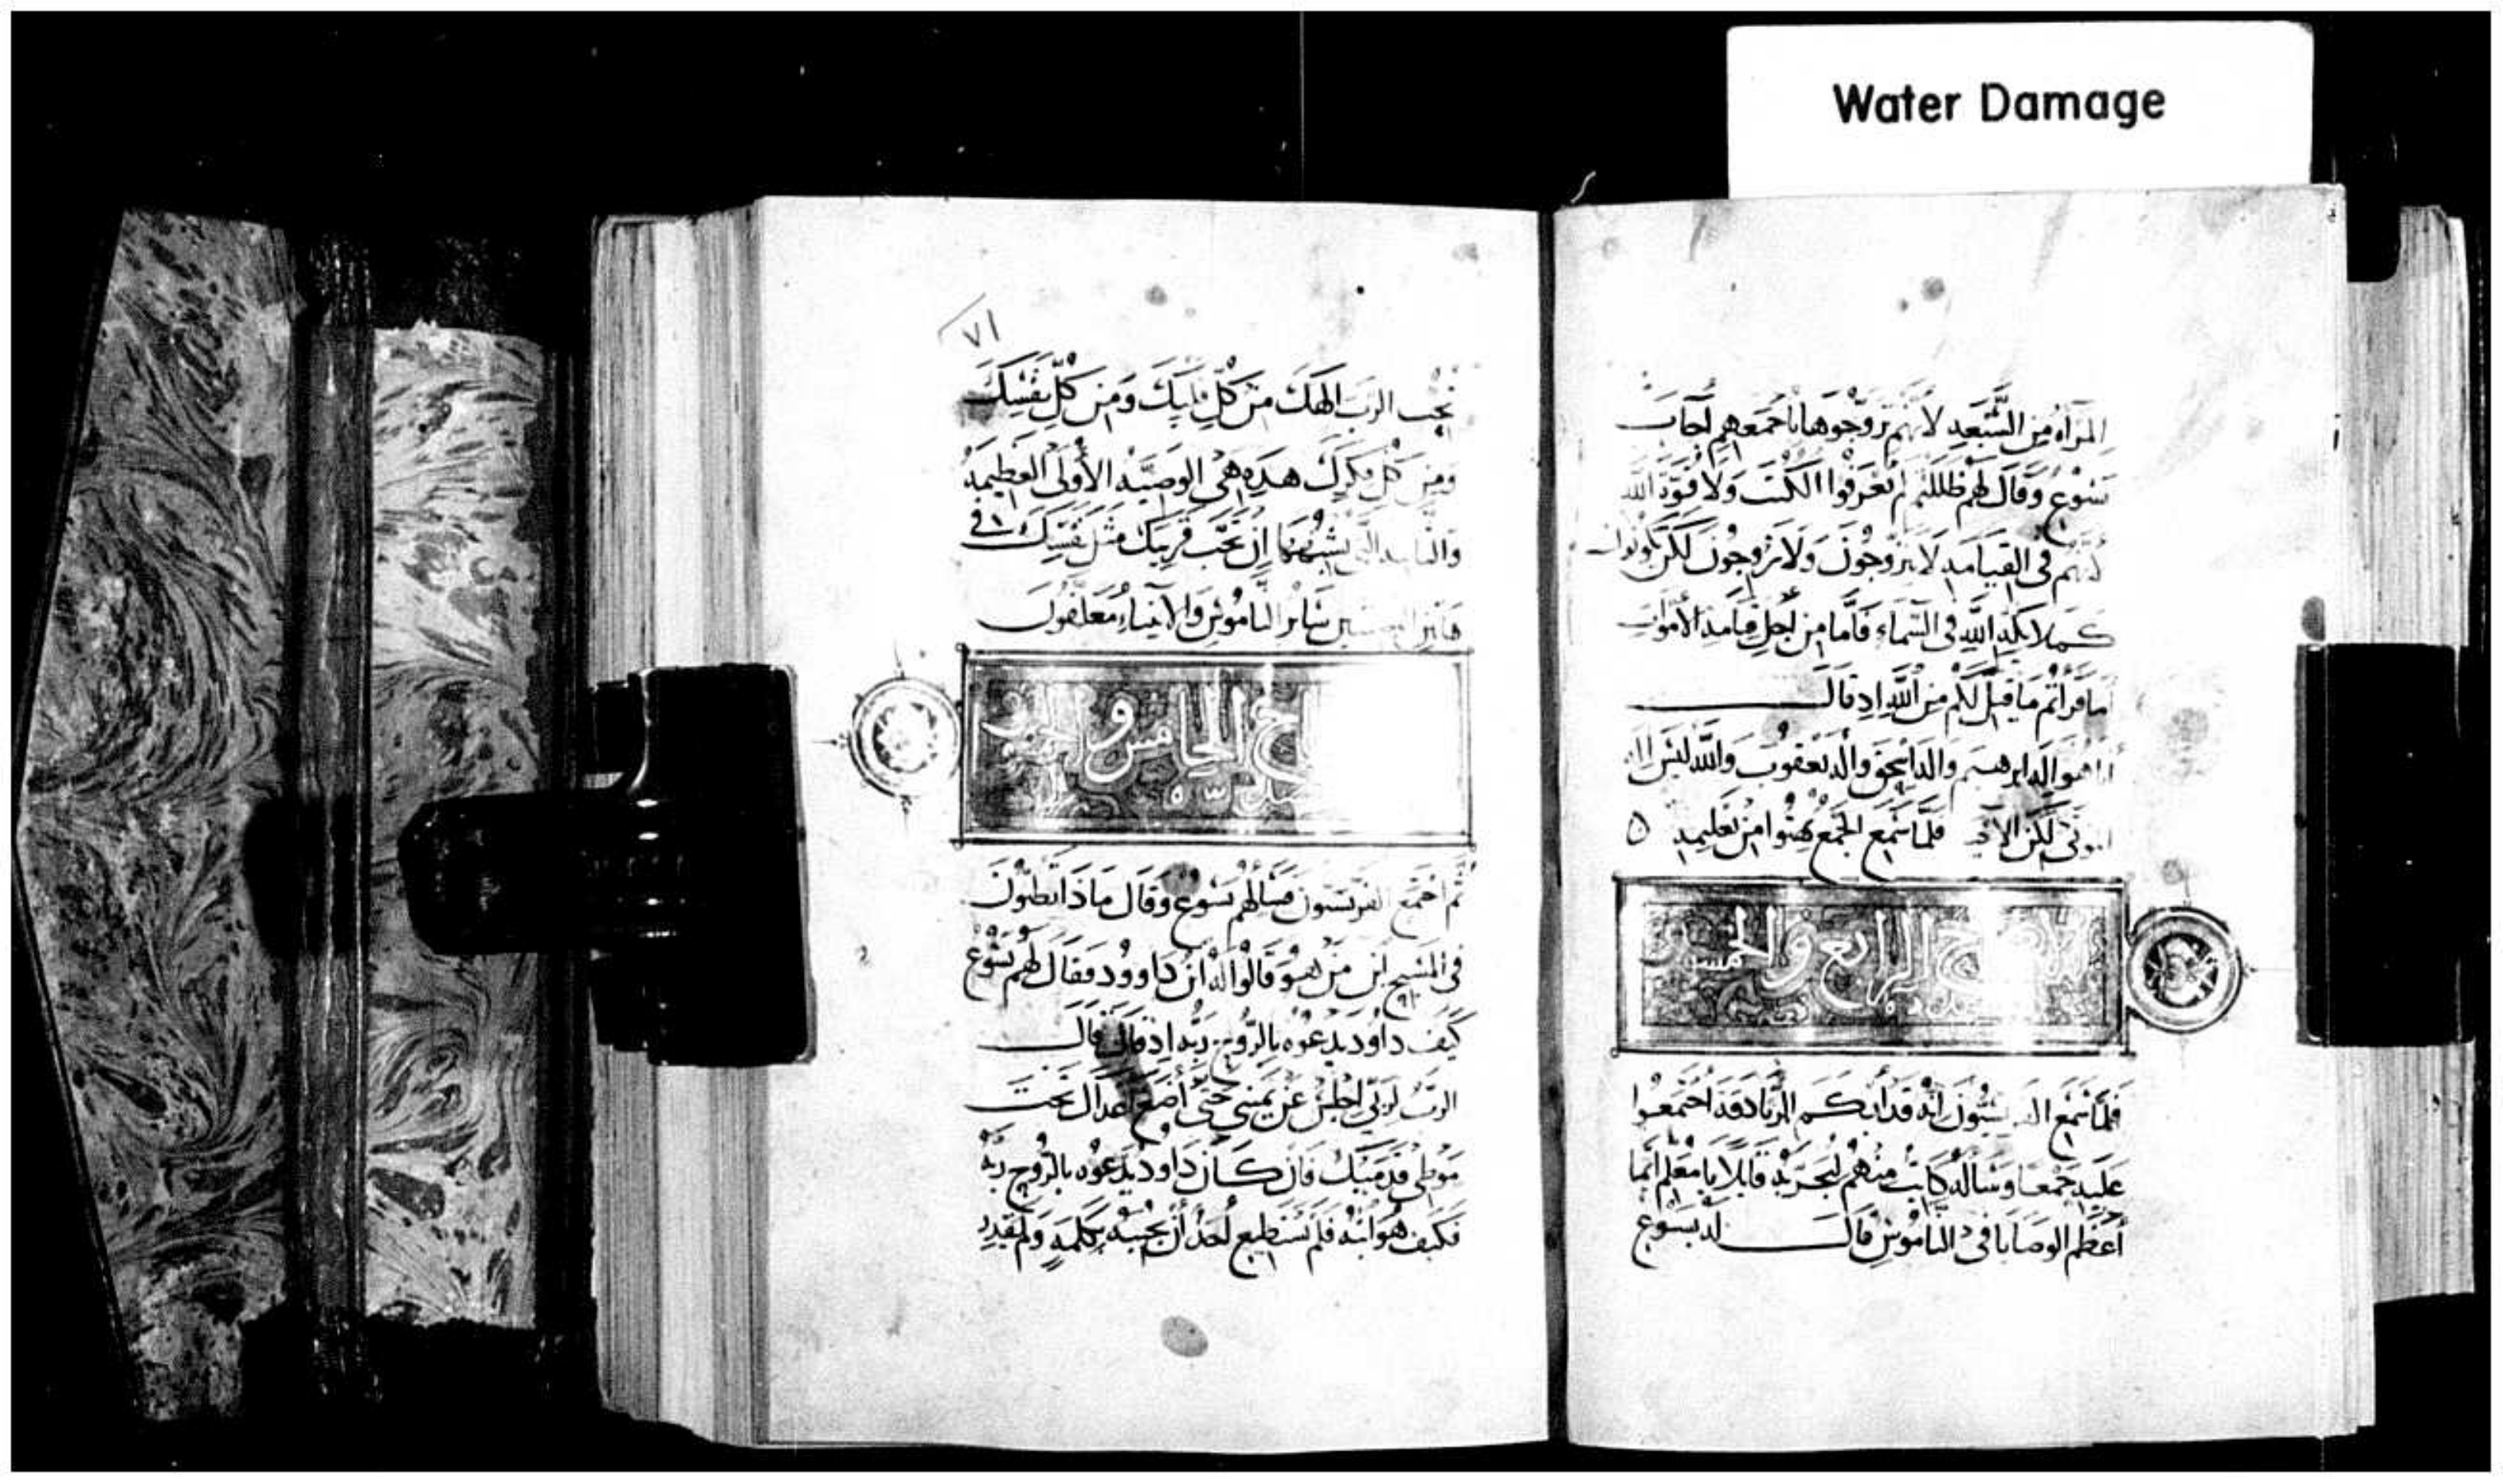 Water Damage
المرأه من السبعه لانهم تزوجوها باجمعهم اجاب
يسوع وقال لهم ظللتم لم تعرفوا الكتب ولا قوة الله
لانهم في القيامه لا يتزوجون ولا يزوجون لكن يكونون
كملائكة الله في السماء فاما من اجل قيامة الاموات
اما قراتم ما قيل لكم من الله اذ قال
انا هو اله ابرهيم واله اسحق واله يعقوب والله ليس اله
موتى لكن الاحيا فلما سمع الجمع بهتوا من تعليمه
الاصحاح الرابع والخمسون
فلما سمع الفريسيون انه قد ابكم الزنادقه اجتمعوا
عليه جمعا وساله كاتب منهم ليجربه قايلا يا معلم ايما
أعظم الوصايا في الناموس قال له يسوع
٧١
تحب الرب الهك من كل قلبك ومن كل نفسك
ومن كل فكرك هذه هي الوصيه الأولى العظيمه
والثانيه التي تشبهها ان تحب قريبك مثل نفسك في
هاتين الوصيتين ساير الناموس والانبياء معلقون
الخامس و
ثم اجتمع الفريسيون فسالهم يسوع وقال ماذا تظنون
في المسيح ابن من هو قالوا له ابن داوود فقال لهم يسوع
كيف داود يدعوه بالروح ربه اذ قال قال
الرب لربي اجلس عن يميني حتى أضع اعداك تحت
موطي قدميك فان كان داود يدعوه بالروح ربه
فكيف هو ابنه فلم يستطيع أحد أن يجيبه بكلمه ولم يقدر